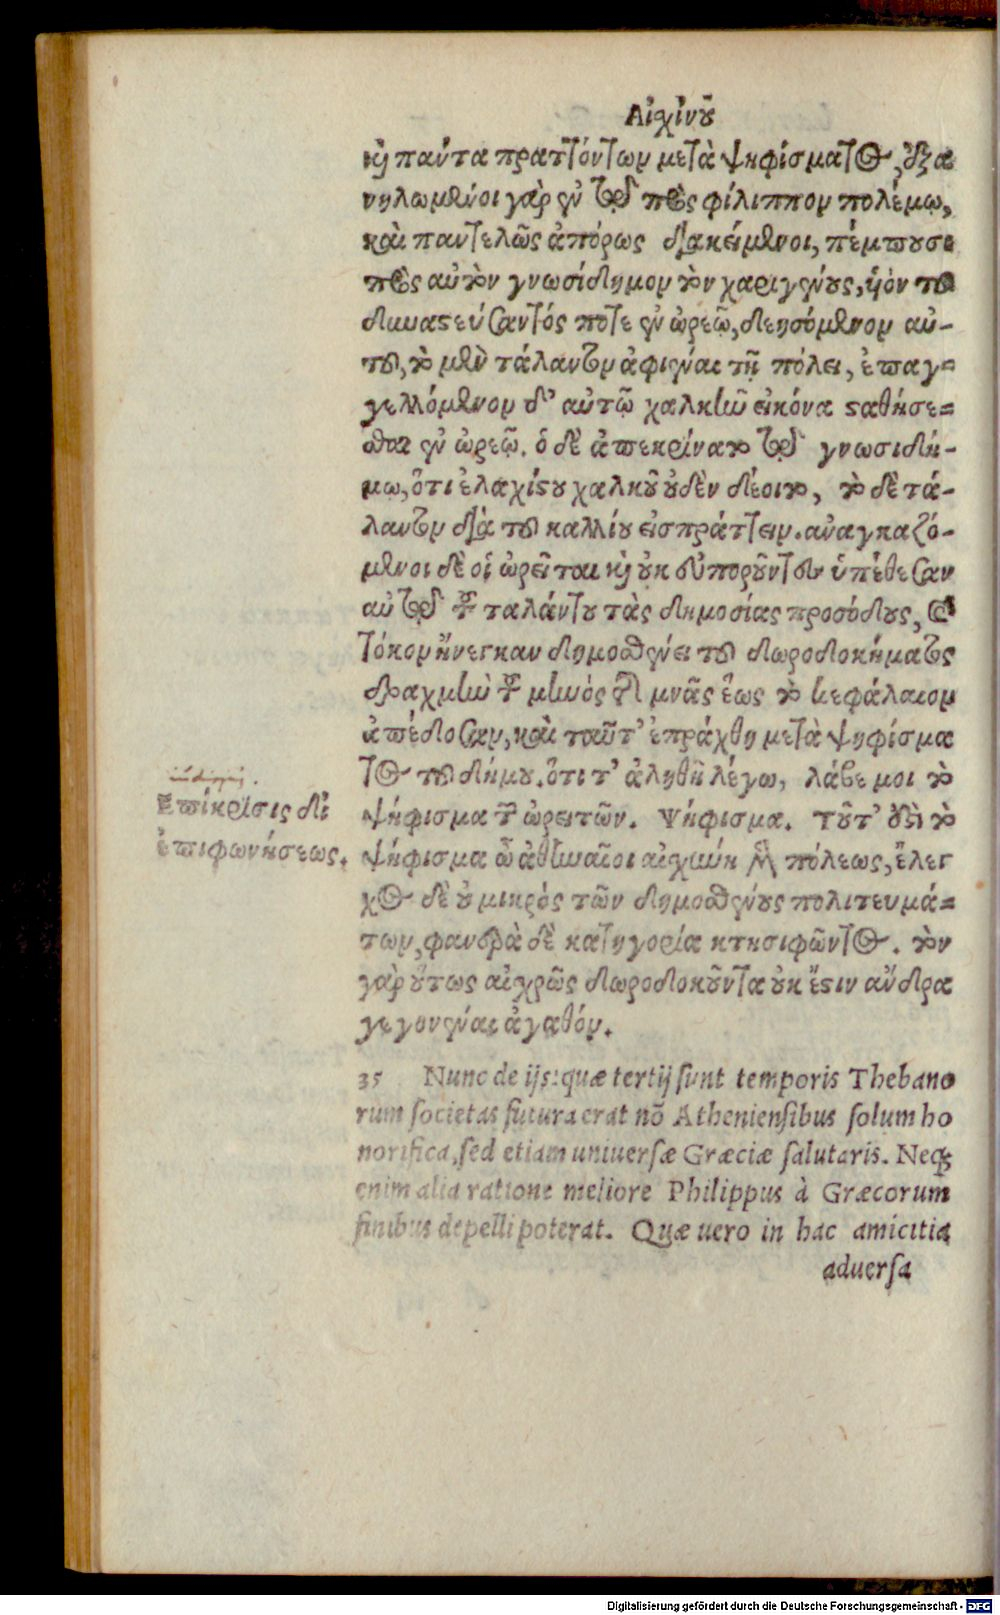 Αἰχίνου
καὶ πάντα πραττόντων μετὰ ψηφίσματος, ἐξα
νηλωμένοι γὰρ ἐν τῷ πρὸς φίλιππον πολέμῳ,
καὶ παντελῶς ἀπόρως διακείμενοι, πέμπουσι
πρὸς αὐτὸν γνωσίδημον τὸν χαριγένους, υἱὸν τοῦ
δυναστεύσαντός ποτε ἐν ὠρεῷ, δεησόμενον αὐ-
τοῦ, τὸ μὲν τάλαντον ἀφιέναι τῇ πόλει, ἐπαγ=
γελλόμενον δ' αὐτῷ χαλκῆν εἰκόνα σταθήσε=
σθαι ἐν ὠρεῷ. ὁ δὲ ἀπεκρίνατο τῷ γνωσιδή-
μῳ, ὅτι ἐλαχίστου χαλκοῦ οὐδὲν δέοιτο, τὸ δὲ τά-
λαντον διὰ τοῦ καλλίου εἰσπράττειν. ἀναγκαζό-
μενοι δὲ οἱ ὠρεῖται καὶ οὐκ εὐποροῦντες ὑπέθεσαν
αὐτῷ τοῦ ταλάντου τὰς δημοσίας προσόδους, καὶ
τόκον ἤνεγκαν δημοσθένει τοῦ δωροδοκήματος
δραχμὴν τοῦ μηνὸς τῆς μνᾶς ἕως τὸ κεφάλαιον
ἀπέδοσαν, καὶ ταῦτ' ἐπράχθη μετὰ ψηφίσμα
τος τοῦ δήμου. ὅτι τ' ἀληθῆ λέγω, λάβε μοι τὸ
ψήφισμα τῶν ὠρειτῶν. Ψήφισμα. Τοῦτ' ἐστὶ τὸ
ψήφισμα ὦ ἀθηναῖοι αἰχύνη τῆς πόλεως, ἔλεγ
χος δὲ οὐ μικρὸς τῶν δημοσθένους πολιτευμά=
των, φανερὰ δὲ κατηγορία κτησιφῶντος. τὸν
γὰρ οὕτως αἰχρῶς δωροδοκοῦντα οὐκ ἔστιν ἄνδρα
γεγονέναι ἀγαθόν.
Ἐπίκρισις δι'
ἐπιφωνήσεως.
35 Nunc de ijs: quæ tertij sunt temporis Thebano
rum societas futura erat nō Atheniensibus solum ho
norifica, sed etiam uniuersæ Græciæ salutaris. Neq;
enim alia ratione meliore Philippus à Græcorum
finibus depelli poterat. Quæ uero in hac amicitia
aduersa
Digitalisierung gefördert durch die Deutsche Forschungsgemeinschaft - DFG